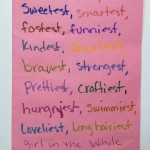 Sweetest, smartest,
fastest, funniest,
Kindest,
bravest, Strongest,
Prettiest, Craftiest
hungriest, Swimmiest,
Loveliest, Long hairiest
girl in the whole